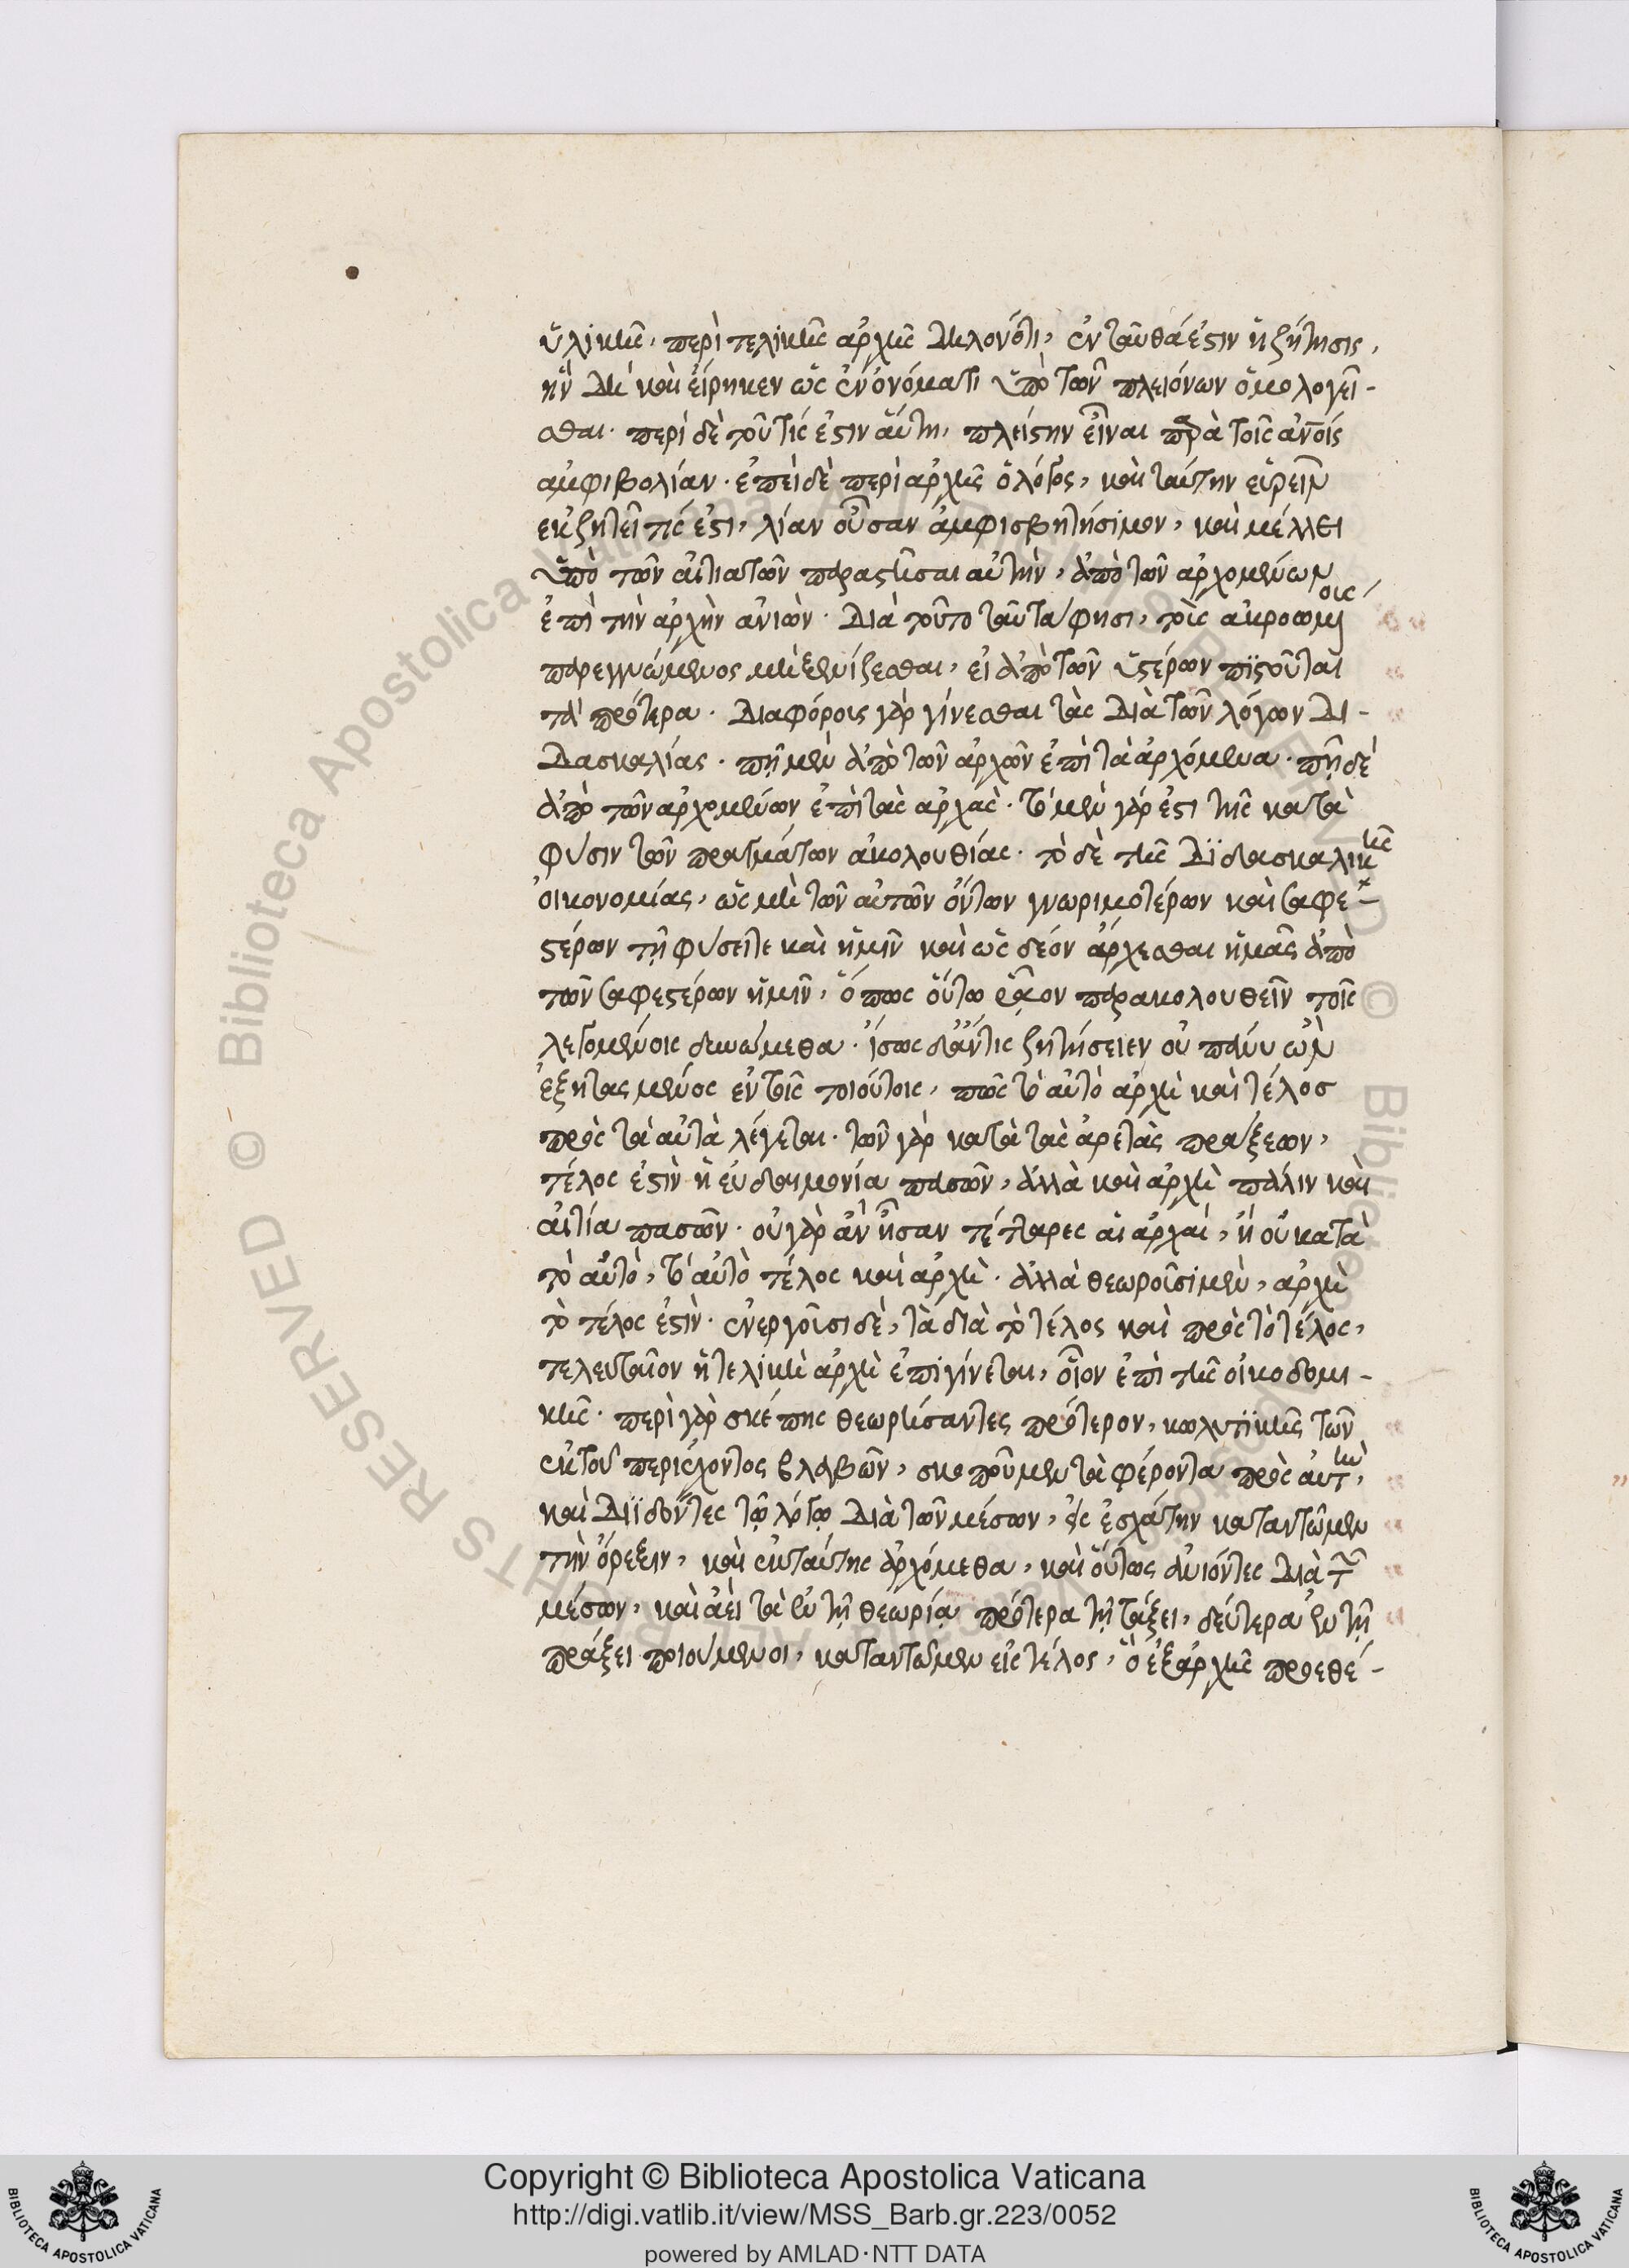 ὑλικῆς, περὶ τελικῆς ἀρχῆς δηλονότι, ἐνταῦθά ἐστιν ἡ ζήτησις,
ἣν δὴ καὶ εἴρηκεν ὡς ἐν ὀνόματι ὑπὸ τῶν πλειόνων ὁμολογεῖ-
σθαι. περὶ δὲ τοῦ τίς ἐστιν αὕτη, πλείστην εἶναι παρὰ τοῖς ἀνοις
ἀμφιβολίαν. ἐπεὶ δὲ περὶ ἀρχῆς ὁ λόγος, καὶ ταύτην εὑρεῖν
ἐκζητεῖ τίς ἐστι, λίαν οὖσαν ἀμφισβητήσιμον, καὶ μέλλει
ὑπὸ τῶν αἰτιατῶν παραστῆσαι αὐτὴν, ἀπὸ τῶν ἀρχομένων
ἐπὶ τὴν ἀρχὴν ἀνιών. διὰ τοῦτο ταῦτα φησι, τοῖς ἀκροωμένοις
παρεγγυώμενος μὴ ξενίζεσθαι, εἰ ἀπὸ τῶν ὑστέρων πιστοῦται
τὰ πρότερα. διαφόροις γὰρ γίνεσθαι τὰς διὰ τῶν λόγων δι-
δασκαλίας. πῆ μὲν ἀπὸ τῶν ἀρχῶν ἐπὶ τὰ ἀρχόμενα. πῆ δὲ
ἀπὸ τῶν ἀρχομένων ἐπὶ τὰς ἀρχὰς. τὸ μὲν γάρ ἐστι τῆς κατὰ
φύσιν τῶν πραγμάτων ἀκολουθίας. τὸ δὲ τῆς διδασκαλικῆς
οἰκονομίας, ὡς μὴ τῶν αὐτῶν ὄντων γνωριμοτέρων καὶ σαφε-
στέρων τῇ φύσει τε καὶ ἡμῖν καὶ ὡς δέον ἄρχεσθαι ἡμᾶς ἀπὸ
τῶν σαφεστέρων ἡμῖν, ὅπως οὕτω ῥᾶον παρακολουθεῖν τοῖς
λεγομένοις δυνώμεθα. ἴσως δ' ἄν τις ζητήσειεν οὐ πάνυ ὢν
ἐξητασμένος ἐν τοῖς τοιούτοις, πῶς τὸ αὐτὸ ἀρχὴ καὶ τέλος
πρὸς τὰ αὐτὰ λέγεται. τῶν γὰρ κατὰ τὰς ἀρετὰς πράξεων,
τέλος ἐστὶν ἡ εὐδαιμονία πασῶν, ἀλλὰ καὶ ἀρχὴ πάλιν καὶ
αἰτία πασῶν. οὐ γὰρ ἂν ἦσαν τέτταρες αἱ ἀρχαὶ, ἢ οὐ κατὰ
τὸ αὐτὸ, τὸ αὐτὸ τέλος καὶ ἀρχὴ. ἀλλὰ θεωροῦσι μὲν, ἀρχὴ
τὸ τέλος ἐστὶν. ἐνεργοῦσι δὲ, τὰ διὰ τὸ τέλος καὶ πρὸς τὸ τέλος,
τελευταῖον ἡ τελικὴ ἀρχὴ ἐπιγίνεται, οἷον ἐπὶ τῆς οἰκοδομι-
κῆς. περὶ γὰρ σκέπης θεωρήσαντες πρότερον, κωλυτικῆς τῶν
ἐκ τοῦ περιέχοντος βλαβῶν, σκοποῦμεν τὰ φέροντα πρὸς αὐτὴν,
καὶ διϊδόντες τῷ λόγῳ διὰ τῶν μέσων, εἰς ἐσχάτην καταντῶμεν
τὴν ὄρεξιν, καὶ ἐκ ταύτης ἀρχόμεθα, καὶ οὕτως ἀνιόντες διὰ τῶν
μέσων, καὶ ἀεὶ τὰ ἐν τῇ θεωρίᾳ πρότερα τῇ τάξει, δεύτερα ἐν τῇ
πράξει ποιούμενοι, καταντῶμεν εἰς τέλος, ὃ ἐξ ἀρχῆς προεθέ-
Copyright © Biblioteca Apostolica Vaticana
http://digi.vatlib.it/view/MSS_Barb.gr.223/0052
powered by AMLAD·NTT DATA